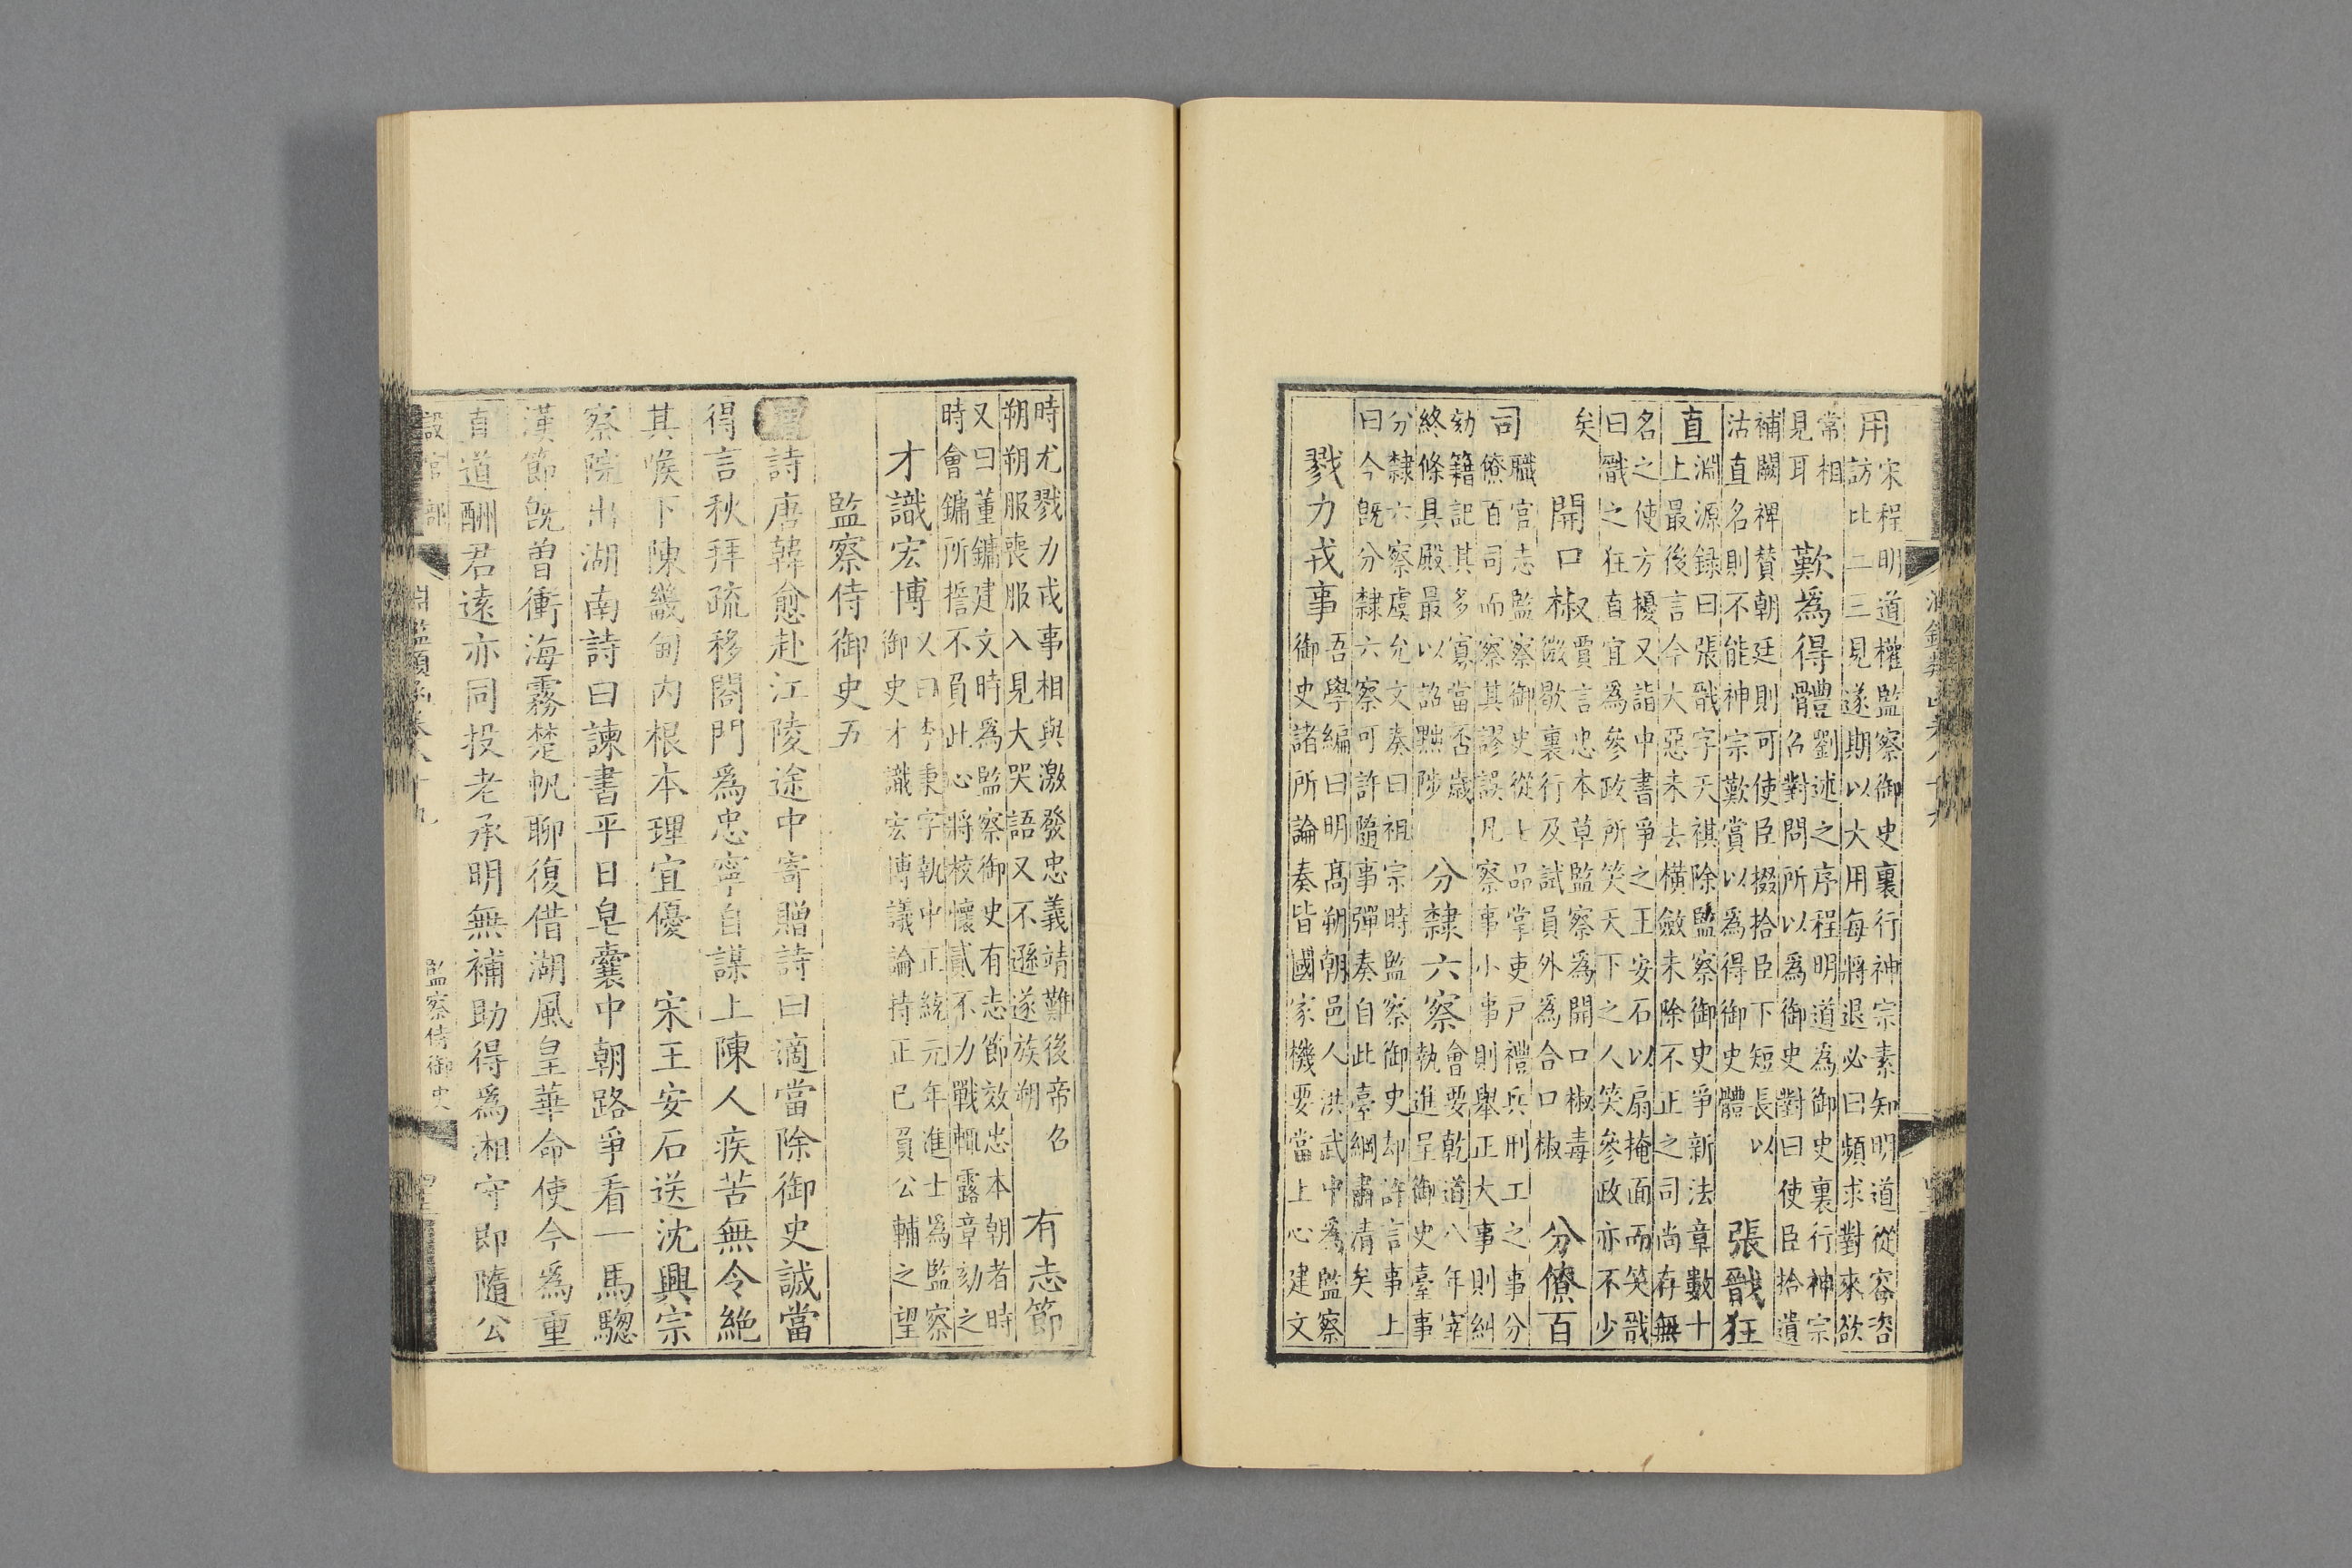 用宋程明道權監察御史裏行神宗素知明道從容咨
訪比二三見遂期以大用每將退必曰頻求對來欲
常相
見耳
歎爲得體劉述之序程明道爲御史裏行神宗
召對問所以爲御史對曰使臣拾遺
補闕裨贊朝廷則可使臣掇拾臣下短長以
沽直名則不能神宗歎賞以爲得御史體
張戩狂
直淵源録曰張戩字天祺除監察御史爭新法章數十
上最後言今大惡未去橫斂未除不正之司尚存無
名之使方擾又詣中書爭之王安石以扇掩面而笑戩
曰戩之狂直宜爲參政所笑天下之人笑參政亦不少
矣
開口椒賈言忠本草監察爲開口椒毒
微歇裏行及試員外爲合口椒
分僚百
司職官志監察御史從七品掌吏戸禮兵刑工之事分
僚百司而察其謬誤凡察事小事則舉正大事則糾
劾籍記其多寡當否歲
終條具殿最以詔黜陟
分隸六察會要乾道八年宰
執進呈御史臺事
分隸六察虞允文奏曰祖宗時監察御史却許言事上
曰今旣分隸六察可許隨事彈奏自此臺綱肅清矣
戮力戎事吾學編曰明髙朔朝邑人洪武中爲監察
御史諸所論奏皆國家機要當上心建文
時尤戮力戎事相與激發忠義靖難後帝召
朔朔服喪服入見大哭語又不遜遂族朔
有志節
又曰董鏞建文時爲監察御史有志節效忠本朝者時
時會鏞所誓不負此心將校懷貳不力戰輒露章劾之
才識宏博又曰李秉字執中正統元年進士爲監察
御史才識宏博議論持正已負公輔之望
監察侍御史五
詩唐韓愈赴江陵途中寄贈詩曰適當除御史誠當
得言秋拜疏移閤門爲忠寧自謀上陳人疾苦無令絶
其喉下陳畿甸内根本理宜優 宋王安石送沈興宗
察院出湖南詩曰諫書平日皂囊中朝路爭看一馬驄
漢節旣曾衝海霧楚帆聊復借湖風皇華命使今爲重
直道酬君遠亦同投老承明無補助得爲湘守即隨公
設官部
淵鑑類函卷八十九
監察侍御史